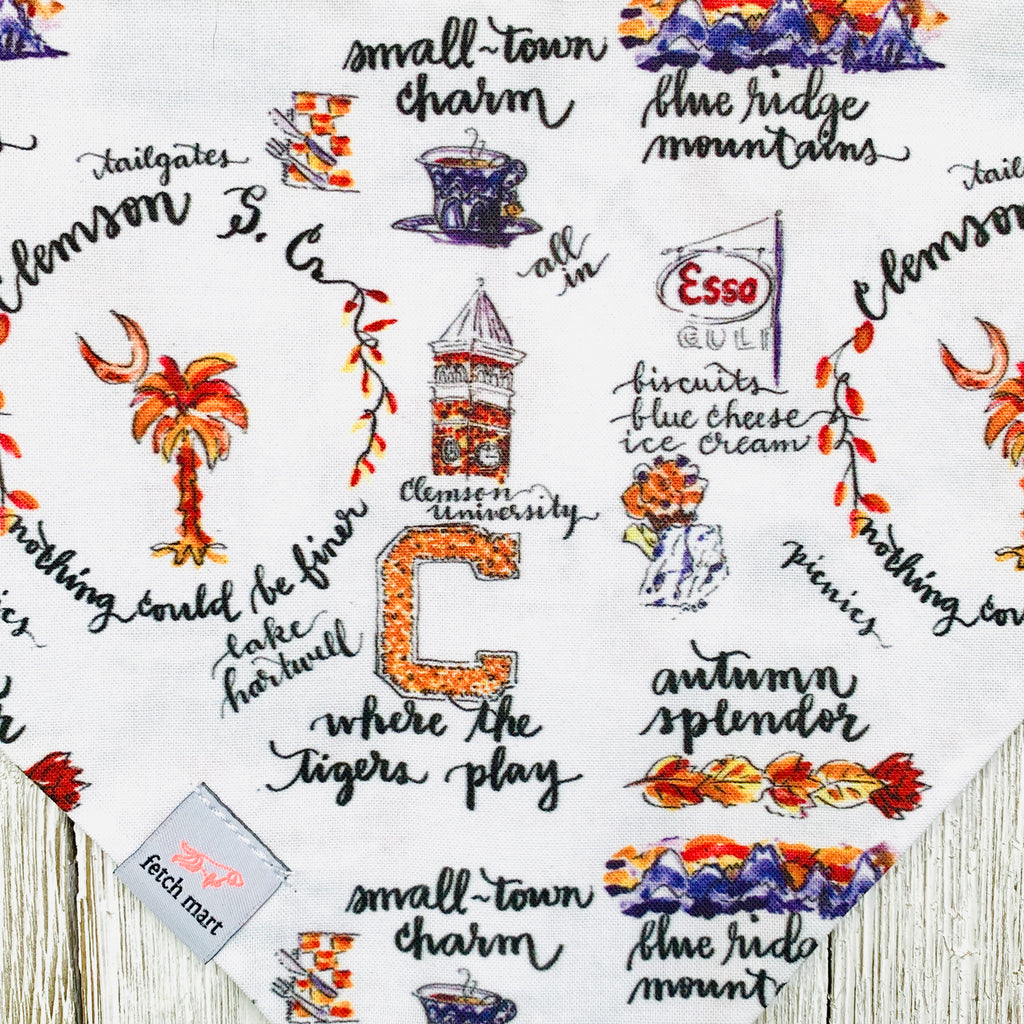 small~town
charm
blue ridge
mountains
tailgates
Clemson S. C.
all
in
Esso
GULF
biscuits
blue cheese
ice cream
Clemson
University
C
nothing could be finer
lake
hartwell
picnics
where the
Tigers play
autumn
splendor
tail
Clemson
nothing cou
cs
r
fetch mart
small~town
charm
blue ridg
mount